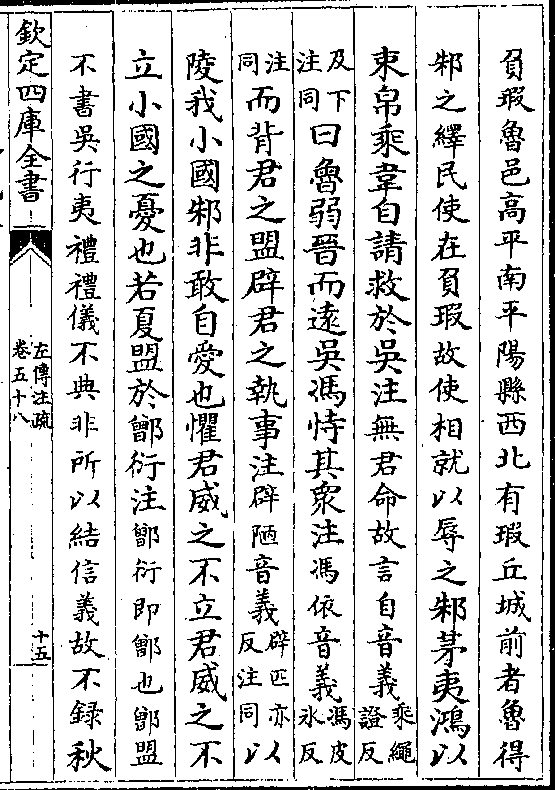 負瑕魯邑高平南平陽縣西北有瑕丘城前者魯得
邾之繹民使在負瑕故使相就以辱之邾茅夷鴻以
束帛乘韋自請救於吳注無君命故言自音義乘繩證反
及下注同曰魯弱晉而遠吳馮恃其衆注馮依音義馮皮氷反
注同而背君之盟辟君之執事注辟陋音義辟匹亦反注同以
陵我小國邾非敢自愛也懼君威之不立君威之不
立小國之憂也若夏盟於鄫衍注鄫衍即鄫也鄫盟
不書吳行夷禮禮儀不典非所以結信義故不錄秋
欽定四庫全書
左傳注疏
卷五十八
十五